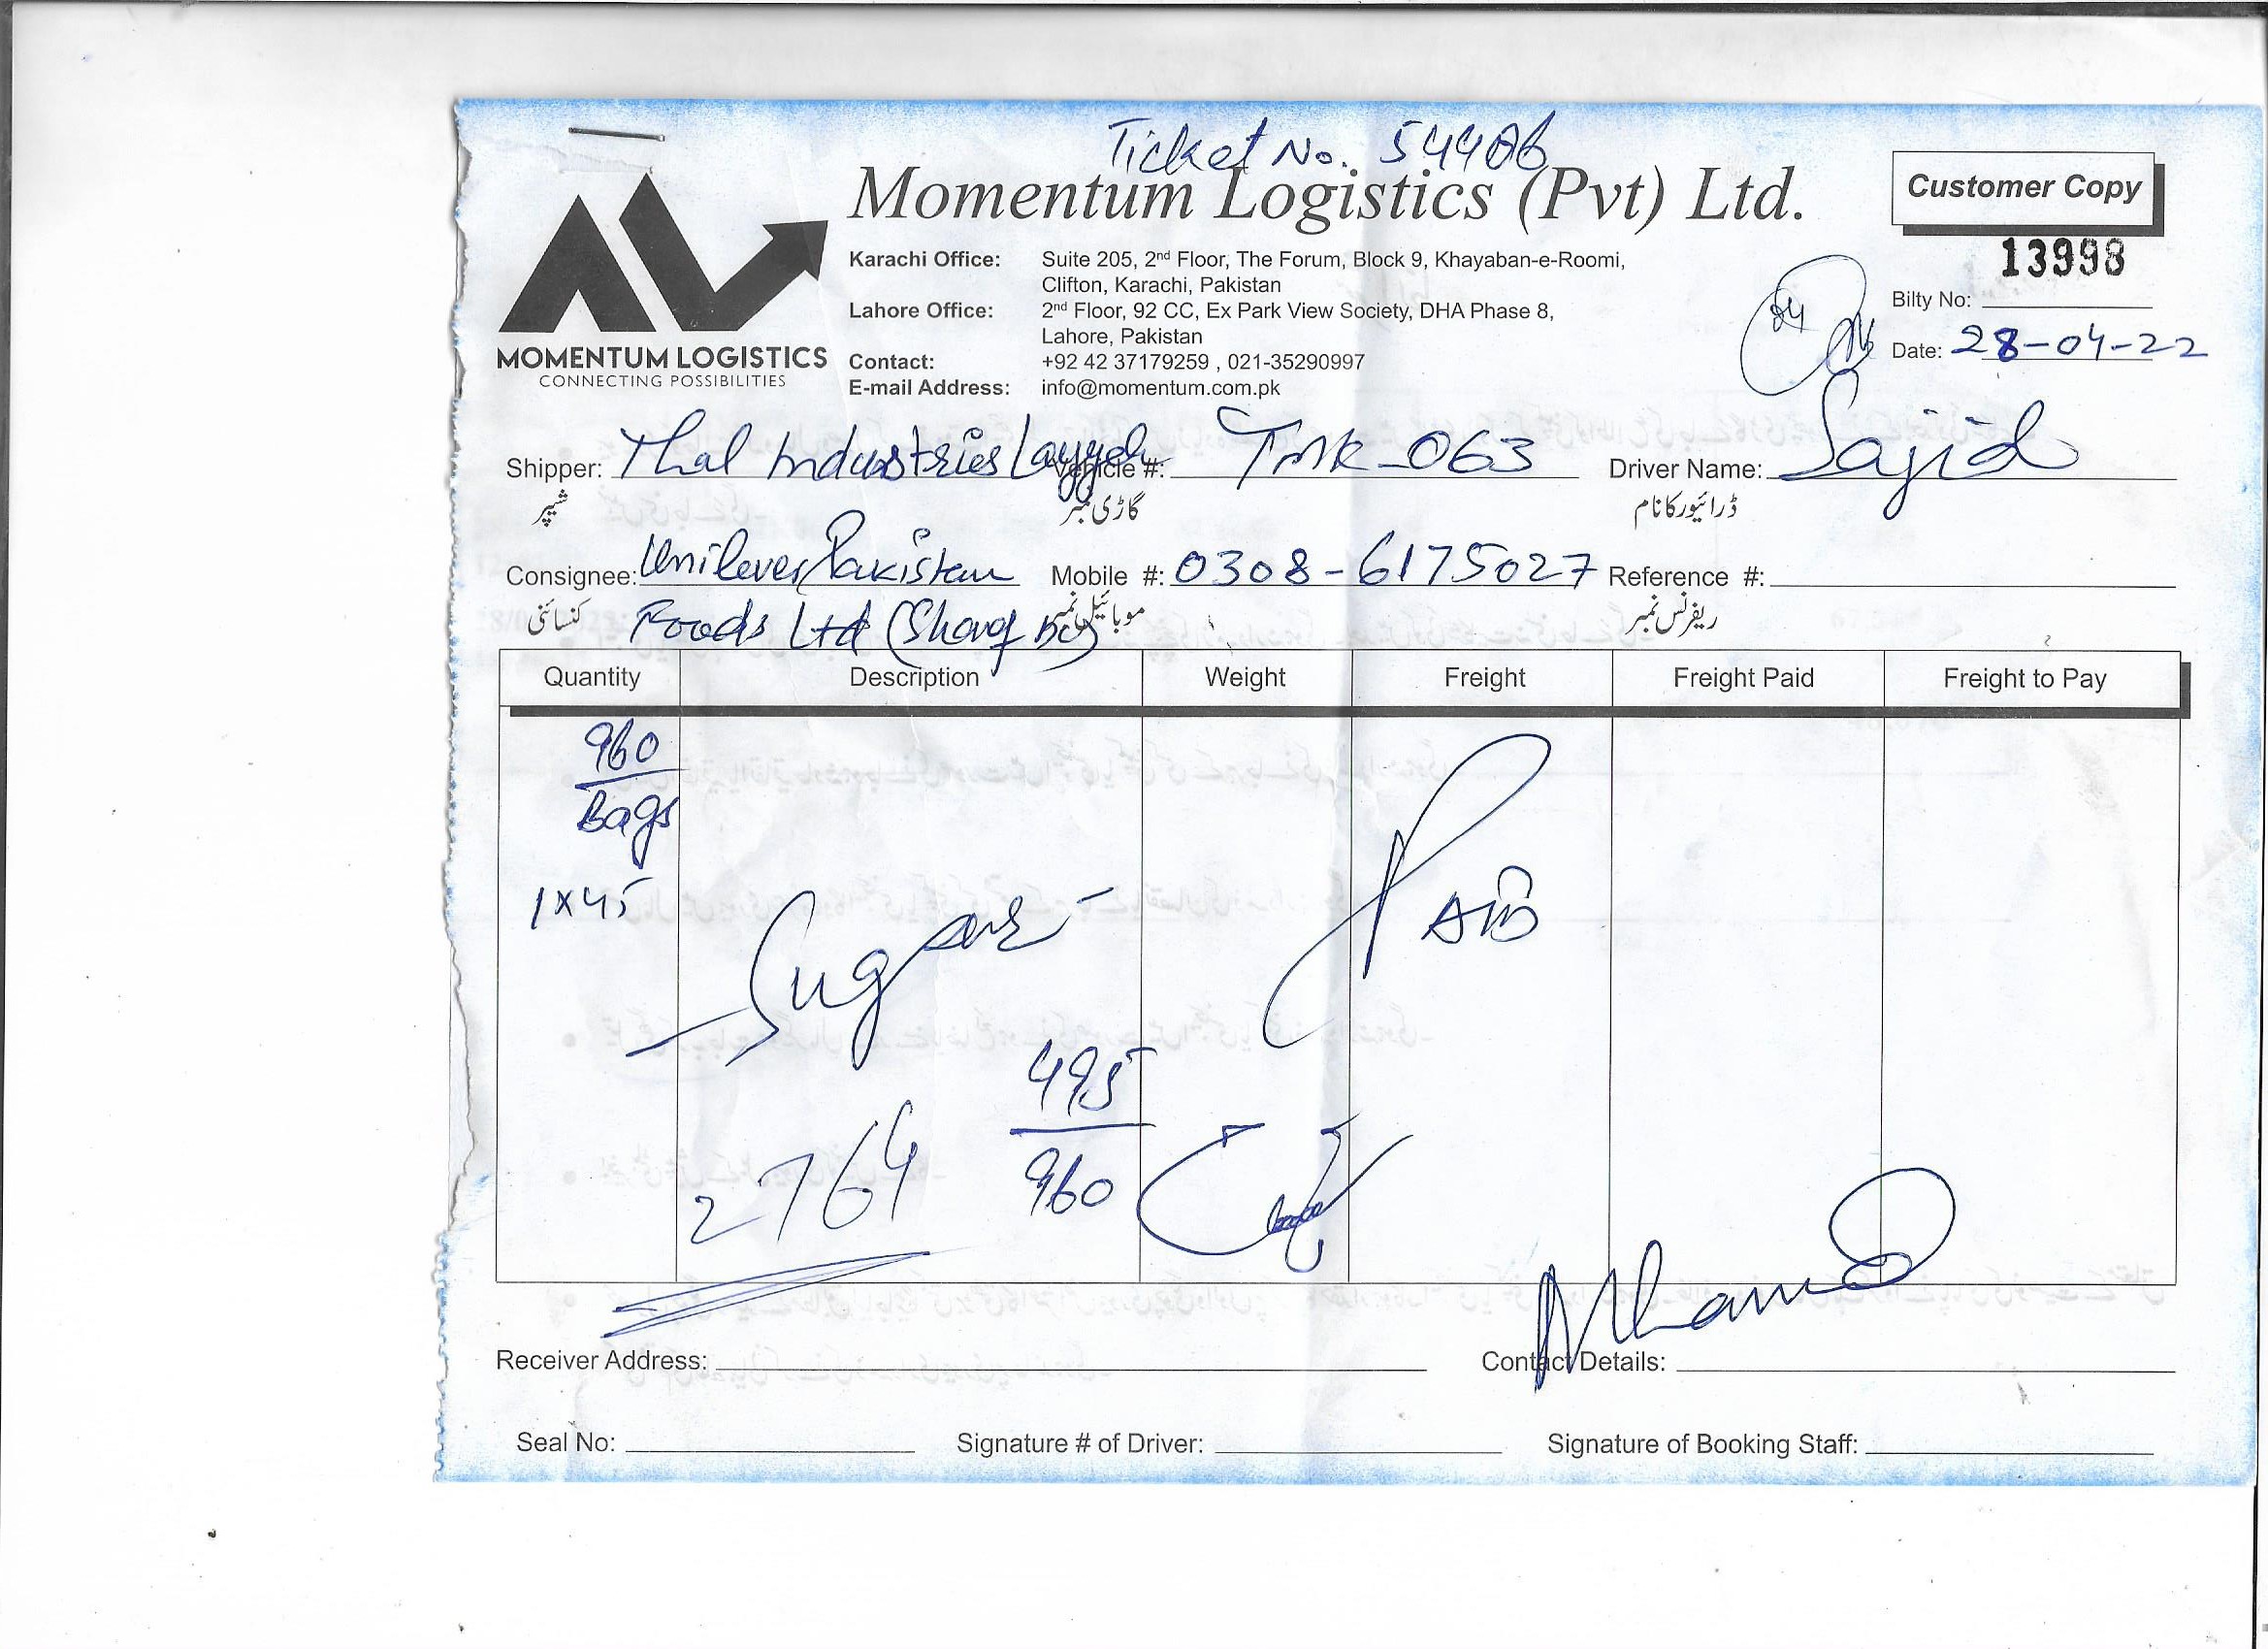 Ticket No. 54406
Momentum Logistics (Pvt) Ltd.
Customer Copy
13998
MOMENTUM LOGISTICS
CONNECTING POSSIBILITIES
Karachi Office: Suite 205, 2nd Floor, The Forum, Block 9, Khayaban-e-Roomi,
Clifton, Karachi, Pakistan
Lahore Office: 2nd Floor, 92 CC, Ex Park View Society, DHA Phase 8,
Lahore, Pakistan
Contact: +92 42 37179259 , 021-35290997
E-mail Address: info@momentum.com.pk
Bilty No:
Date: 28-04-22
Shipper: Thal Industries Layyah Vehicle #: TMK-063 Driver Name: Sajid
شیپر گاڑی نمبر ڈرائیور کا نام
Consignee: Unilever Pakistan Mobile #: 0308-6175027 Reference #:
کنسائنی Foods Ltd موبائیل نمبر ریفرنس نمبر
Quantity Description Weight Freight Freight Paid Freight to Pay
960
Bags
1x45
Sugar
495
960
2764
Receiver Address: Contact Details:
Seal No: Signature # of Driver: Signature of Booking Staff: